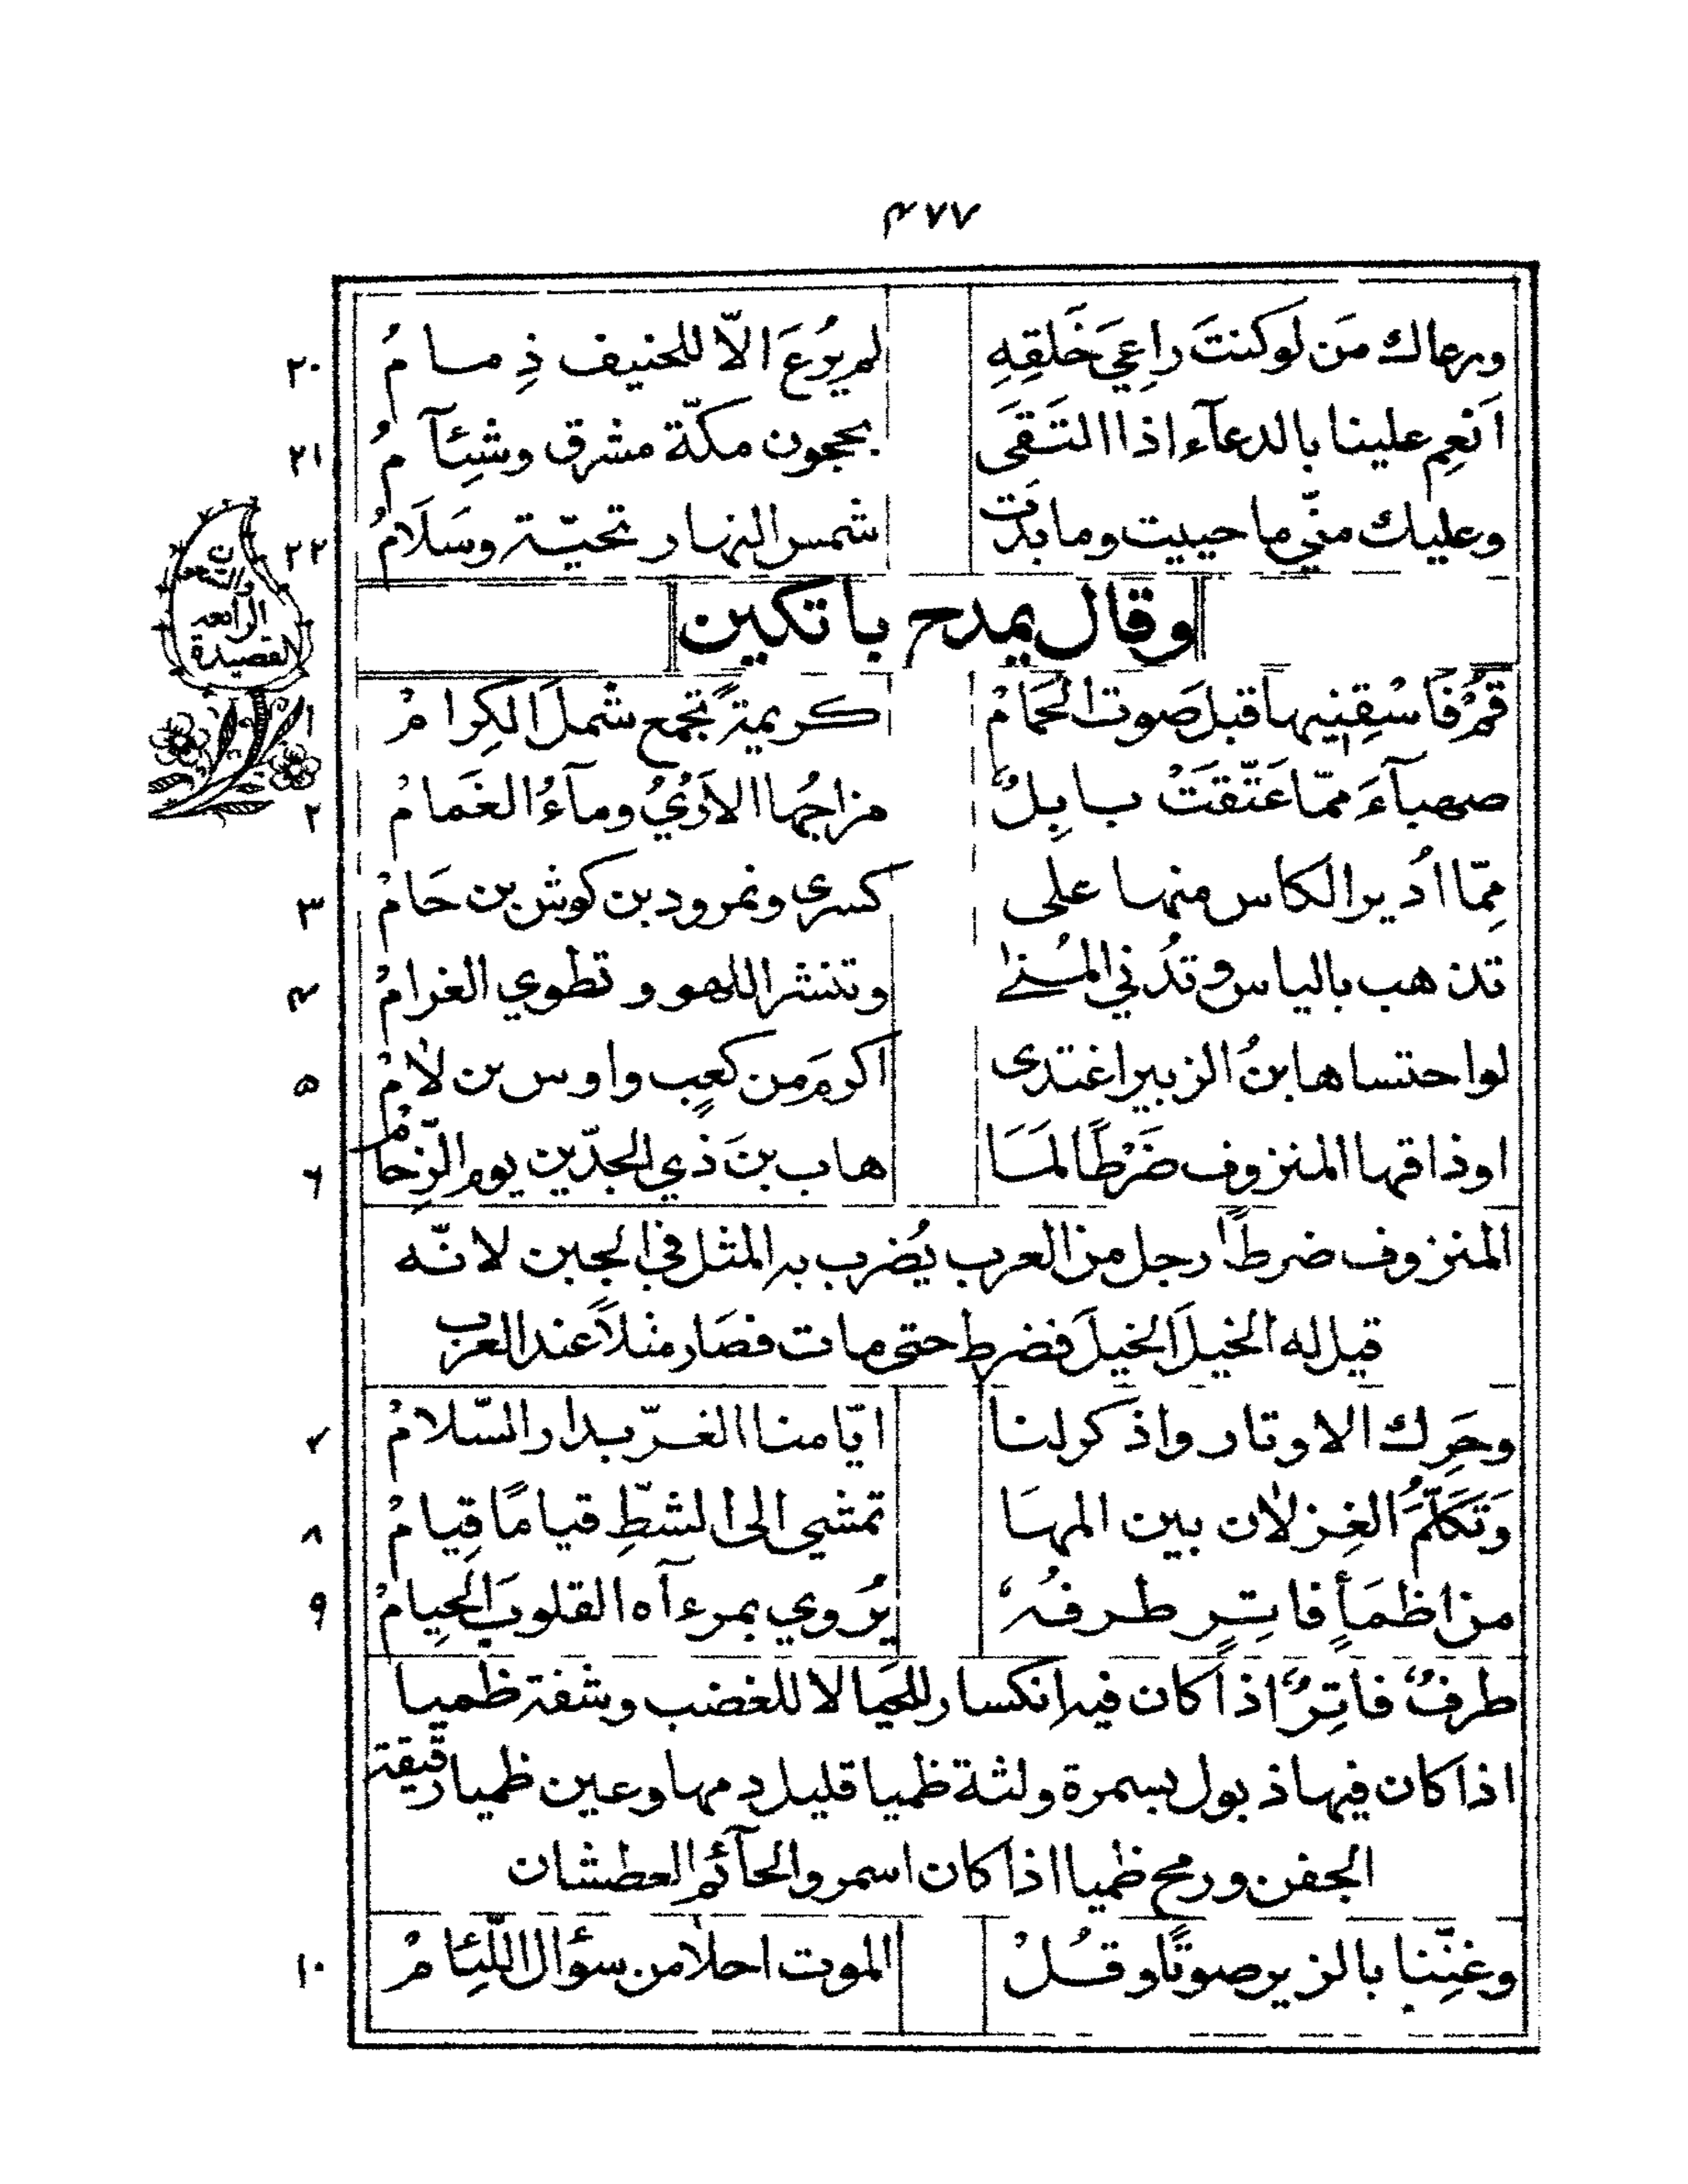 ٤٧٧
ويرعاك مَن لو كنتَ راعِيَ خَلقِهِ لم يُرعَ الّا للحنيف ذِمامُ ٢٠
اَنعِم علينا بالدعآء اذا التَقَى بحجون مكّة مشرق وشِئآمُ ٢١
وعليك منّي ما حييت وما بدَت شمس النهار تحيّة وسَلَامُ ٢٢
وقال يمدح باتكين
القصيدة الرابعه والتسعون
قُمْ فَاسْقِنيها قبل صَوت الحَمَامْ كريمةً تجمع شملَ الكِرامْ ١
صهبآءَ ممّا عَتَّقَتْ بابِلٌ مزاجُها الأرْيُ ومآءُ الغَمامْ ٢
مِمّا اُدير الكاس منها على كسرى ونمرود بن كوش بن حَامْ ٣
تذهب بالياس وتُدْني المُنىٰ وتنشر اللهو وتطوي الغرامْ ٤
لو احتساها ابنُ الزبير اغتدى اكرمَ من كعبٍ واوس بن لامْ ٥
او ذاقها المنزوف ضَرْطًا لمَا هاب بنَ ذي الجدّين يوم الزِّحامْ ٦
المنزوف ضرطًا رجل من العرب يُضرب به المثل في الجبن لانّه
قيل له الخيلَ الخيلَ فضرط حتى مات فصَار مثلاً عند العرب
وحَرِك الاوتار واذكر لنا ايّامنا الغرّ بدار السّلامْ ٧
وَتَكَلُّمَ الغِزلان بين المهَا تمشي الى الشطِّ قيامًا قِيامْ ٨
من اظمَأٍ فاتِرٍ طرفُهُ يُروي بمرءآه القلوبَ الحِيامْ ٩
طرفٌ فاتِرٌ اذا كان فيه انكسار للحَيا لا للغضب وشفة ظميا
اذا كان فيها ذبول بسمرة ولثة ظميا قليل دمها وعين ظميا رقيقة
الجفن ورمح ظميا اذا كان اسمر والحآئم العطشان
وغنِّنا بالزير صوتًا وقُلْ الموت احلا من سؤال اللّئامْ ١٠